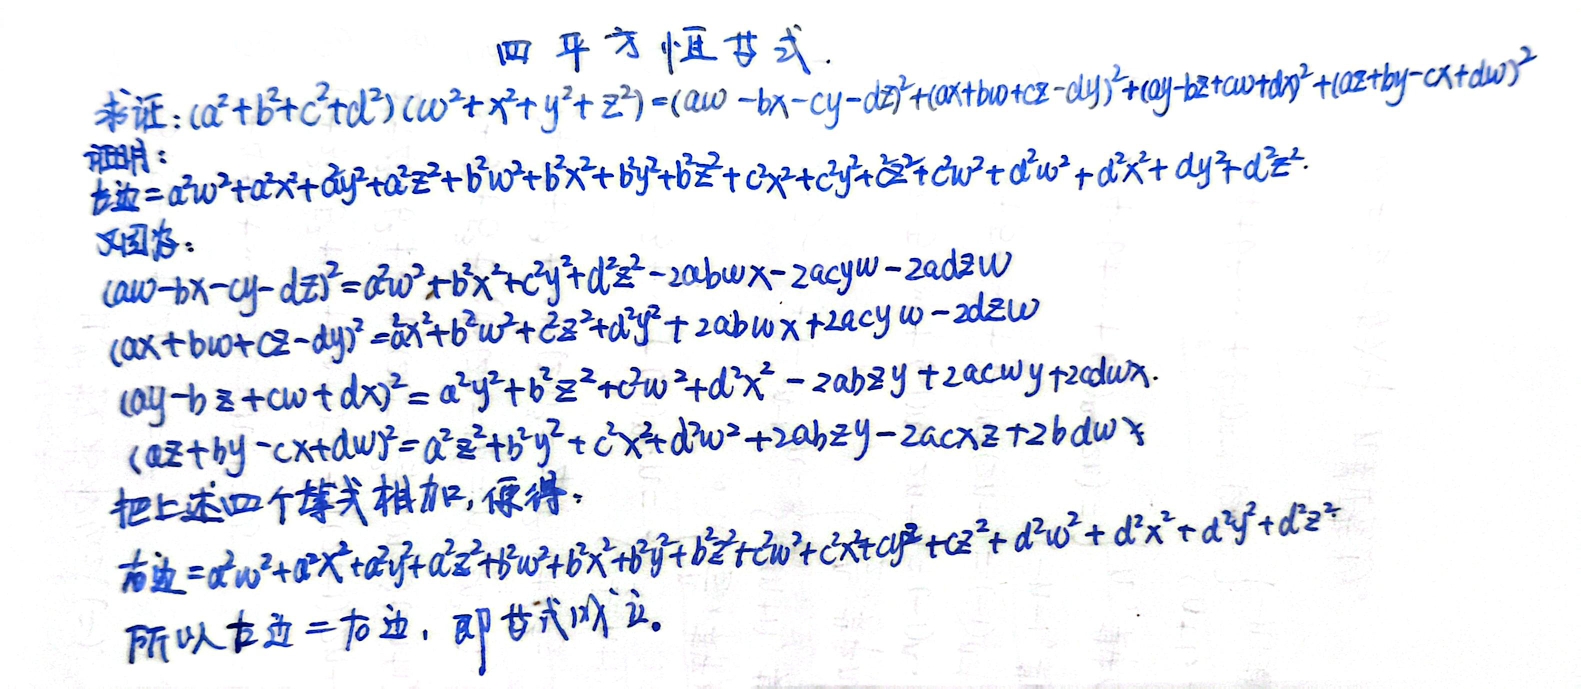 四平方恒等式.
求证:(a²+b²+c²+d²)(w²+x²+y²+z²)=(aw-bx-cy-dz)²+(ax+bw+cz-dy)²+(ay-bz+cw+dx)²+(az+by-cx+dw)²
证明:
左边=a²w²+a²x²+a²y²+a²z²+b²w²+b²x²+b²y²+b²z²+c²x²+c²y²+c²z²+c²w²+d²w²+d²x²+dy²+d²z².
又因为:
(aw-bx-cy-dz)²=a²w²+b²x²+c²y²+d²z²-2abwx-2acyw-2adzw
(ax+bw+cz-dy)²=a²x²+b²w²+c²z²+d²y²+2abwx+2acyw-2dzw
(ay-bz+cw+dx)²=a²y²+b²z²+c²w²+d²x²-2abzy+2acwy+2cdwx.
(az+by-cx+dw)²=a²z²+b²y²+c²x²+d²w²+2abzy-2acxz+2bdw
把上述四个等式相加,便得:
右边=a²w²+a²x²+a²y²+a²z²+b²w²+b²x²+b²y²+b²z²+c²w²+c²x²+cy²+cz²+d²w²+d²x²+d²y²+d²z²
所以左边=右边,即等式成立。